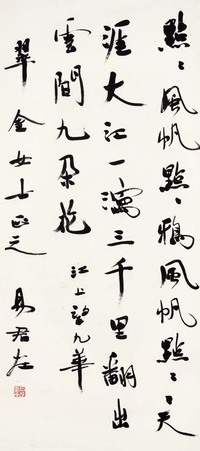 點〻風帆點〻鴉風帆點〻天
涯大江一瀉三千里翻出
雲間九朵花 江上望九華
翠金女士正之 易君左